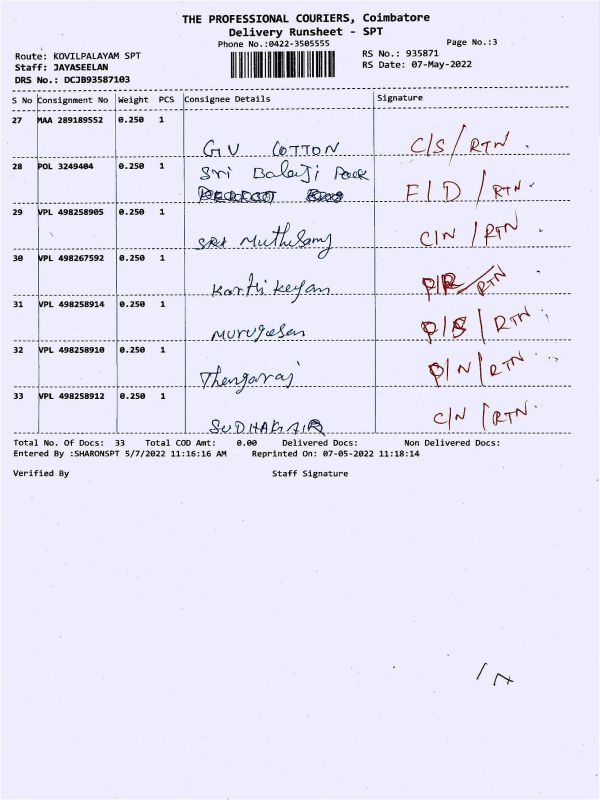 THE PROFESSIONAL COURIERS, Coimbatore
Delivery Runsheet - SPT
Phone No.:0422-3505555
Page No.:3
Route: KOVILPALAYAM SPT
RS No.: 935871
Staff: JAYASEELAN
RS Date: 07-May-2022
DRS No.: DCJB93587103
S No Consignment No Weight PCS Consignee Details Signature
27 MAA 289189552 0.250 1
GV COTTON C/S / RTN.
28 POL 3249404 0.250 1 Sri Balaji Pack
F/D / RTN.
29 VPL 498258905 0.250 1
Muthusamy C/N / RTN.
30 VPL 498267592 0.250 1
Karthikeyan /RTN
31 VPL 498258914 0.250 1
Murugesan / RTN.
32 VPL 498258910 0.250 1
Thangaraj /N / RTN.
33 VPL 498258912 0.250 1
SUDHAKAR C/N / RTN.
Total No. Of Docs: 33 Total COD Amt: 0.00 Delivered Docs: Non Delivered Docs:
Entered By :SHARONSPT 5/7/2022 11:16:16 AM Reprinted On: 07-05-2022 11:18:14
Verified By Staff Signature